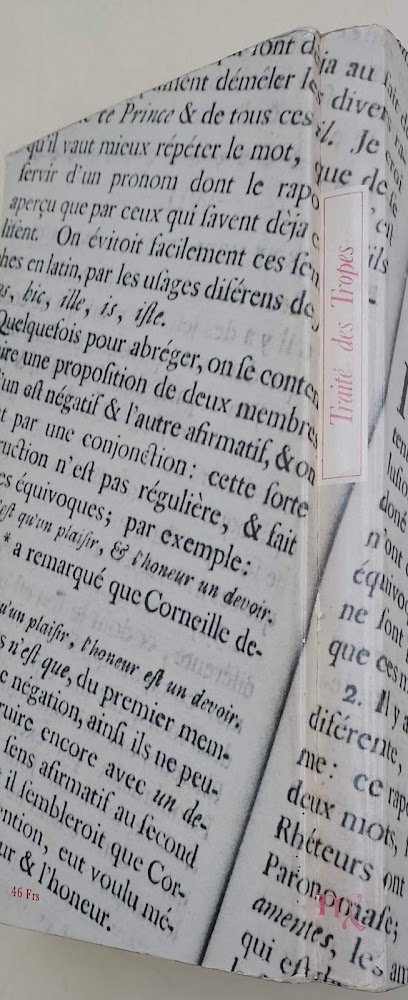 font d
ment démêler le
ce Prince & de tous ces
qu'il vaut mieux répéter le mot,
servir d'un pronom dont le rapo
aperçu que par ceux qui savent déja
On évitoit facilement ces
hes en latin, par les usages diférens de
hic, ille, is, iste.
Quelquefois pour abréger, on se conten
ire une proposition de deux membres
un est négatif & l'autre afirmatif, & on
t par une conjonction: cette sorte
ruction n'est pas régulière, & fait
es équivoques; par exemple:
est qu'un plaisir, & l'honneur un devoir.
* a remarqué que Corneille de-
qu'un plaisir, l'honneur est un devoir.
s n'est que, du premier mem-
e négation, ainsi ils ne peu-
ruire encore avec un de-
sens afirmatif au second
t il sembleroit que Cor-
ention, eut voulu mé-
ur & l'honneur.
46 Frs
ja au fait d
diver
il. Je
que de
ils
Traité des Tropes
tend
lusio
doné
n'ont
équivo
ne font
que ces m
2. Il y a
diférente,
me: ce rap
deux mots,
Rhéteurs ont
Paronomase;
amentes, les am
qui est